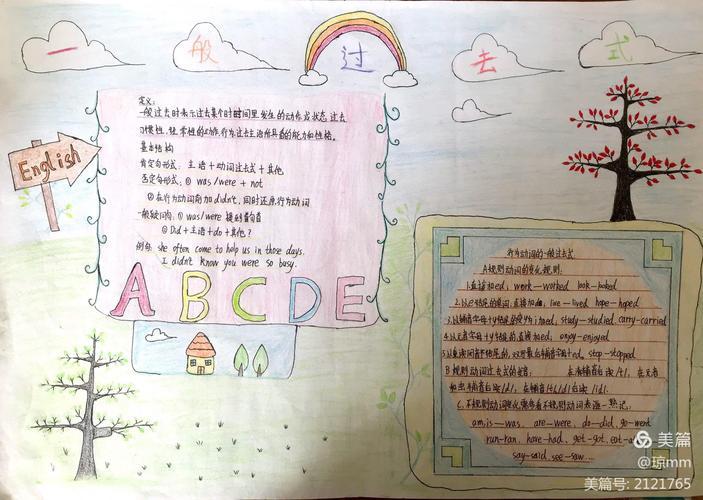 一般过去式
English
定义:
一般过去时表示过去某个时间里发生的动作或状态,过去
习惯性、经常性的动作、行为过去主语所具备的能力和性格。
基本结构
肯定句形式: 主语+动词过去式+其他
否定句形式: ① was/were + not
② 在行为动词前加didn't,同时还原行为动词
一般疑问句: ① was/were 提到句首
② Did+主语+do+其他?
例句: she often come to help us in those days.
I didn't know you were so busy.
ABCDE
行为动词的一般过去式
A规则动词的变化规则:
1.直接加ed, work—worked look—looked
2.以e结尾的 live—lived hope—hoped
3.以辅音字母+y结尾的变y为i加ed, study—studied, carry-carried
4.以元音字母+y结尾的,直接加ed, enjoy—enjoyed
5.以重读闭音节结尾的,双写最后辅音字母+ed, stop—stopped
B 规则动词过去式的读音: 在清辅音后读/t/, 在元音
和浊辅音后读/d/, 在辅音/t/,/d/后读/id/.
C、不规则动词变化需参看不规则动词表逐一熟记:
am,is—was, are—were, do—did, go—went
run-ran, have-had, get-got, eat-
say-said, see-saw...
美篇
@琼mm
美篇号: 2121765